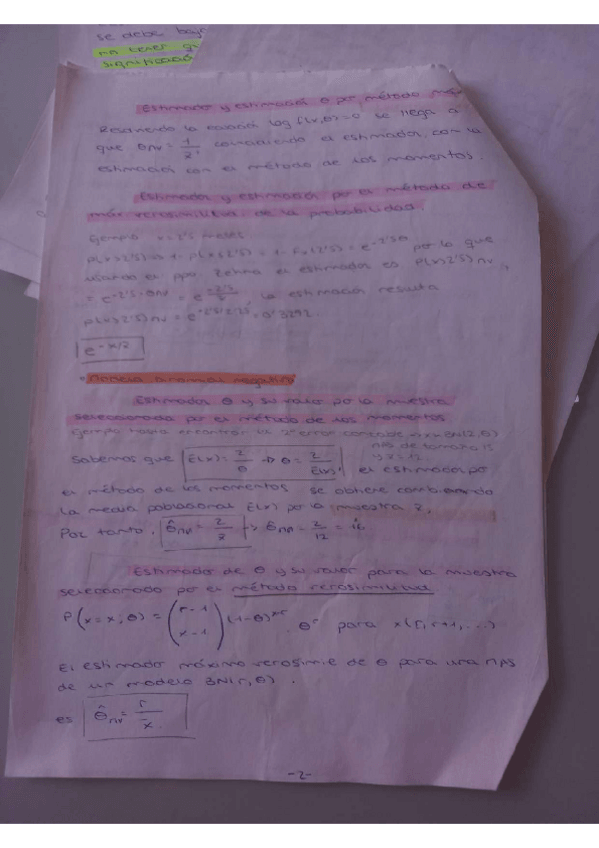 se debe bajo
no tener
significació
Estimador y estimació θ por método
Resolviendo la ecuación log f(x,θ)=0 se llega a
que θMV = 1/x̄, coincidiendo el estimador con la
estimació con el método de los momentos.
Estimador y estimació por el método de
máx verosimilitud de la probabilidad.
Ejemplo x=2'5 meses
P(X>2'5) = 1- P(X≤2'5) = 1- Fx(2'5) = e^-2'5θ por lo que
usando el ppo. Zehna el estimador es P(X>2'5)MV,
= e^-2'5·θMV = e^-2'5/x̄, la estimació resulta
P(X>2'5)MV = e^-2'5/2'25 = 0'3292
e^-x/2
Modelo binomial negativo
Estimador θ y su valor por la muestra
seleccionada por el método de los momentos
Ejemplo hasta encontrar el 2º error contable => X≈BN(2,θ)
mas de tamaño 15
y x̄=12
Sabemos que E(X)= 2/θ -> θ= 2/E(X), el estimador por
el método de los momentos se obtiene cambiando
la media poblacional E(X) por la muestra
Por tanto, θ̂MM = 2/x̄ -> θ̂MM = 2/12 =
Estimador de θ y su valor para la muestra
seleccionado por el método verosimilitud
P(X=x; θ) = (r-1 x-1) (1-θ)^x-r · θ^r para x(r, r+1, ...)
El estimador máximo verosimil de θ para una mas
de un modelo BN(r,θ).
es θ̂MV = r/x̄
-2-